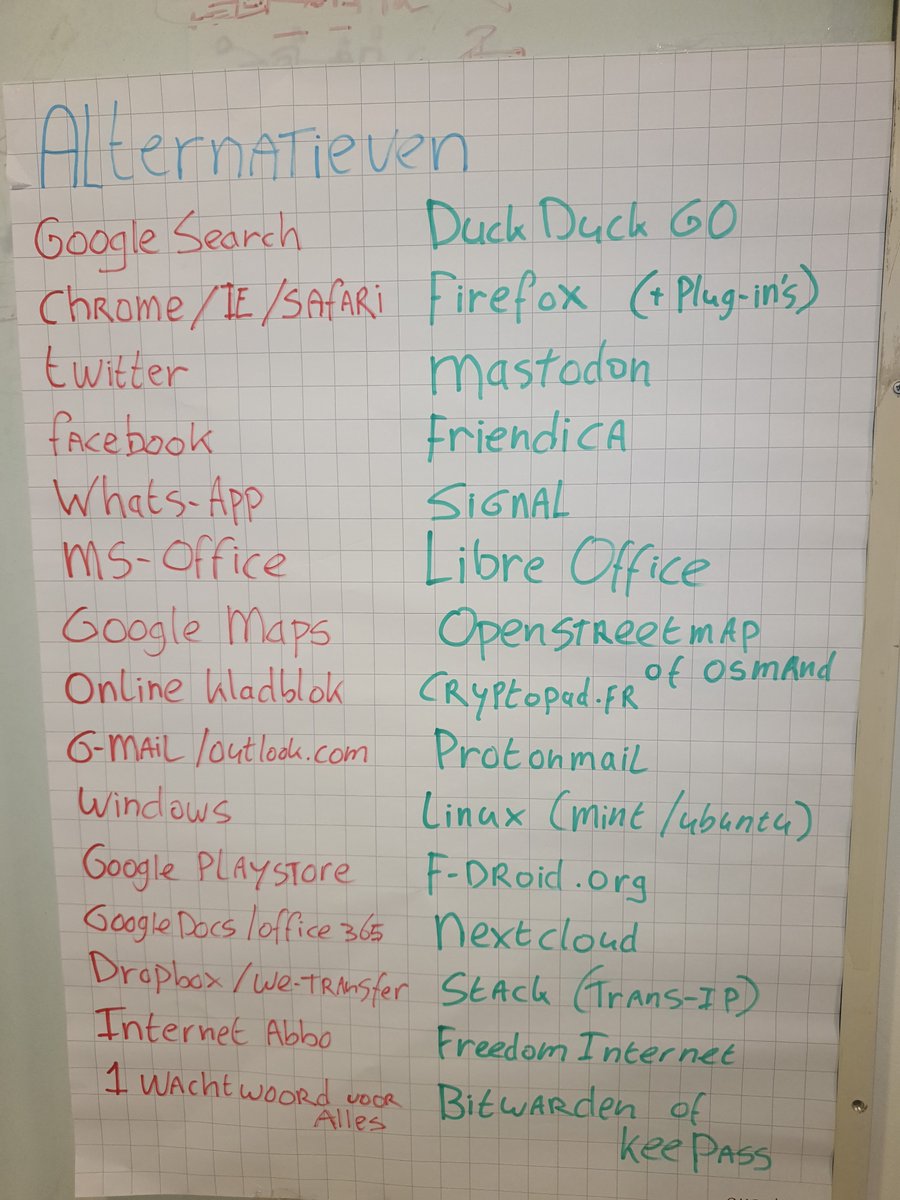 Alternatieven
Google Search Duck Duck GO
Chrome/IE/Safari Firefox (+ Plug-in's)
twitter mastodon
facebook Friendica
Whats-App SiGNAL
MS-Office Libre Office
Google Maps Openstreetmap
of osmand
Online kladblok CRyptopad.FR
G-MAiL/outlook.com ProtonmaiL
Windows Linux (mint/ubuntu)
Google PLAYSTORE F-DRoid.org
Google Docs/office 365 nextcloud
Dropbox/We-TRAnsfer StAck (TrAns-IP)
Internet Abbo Freedom Internet
1 WAchtwoord voor Bitwarden of
Alles
keePASS